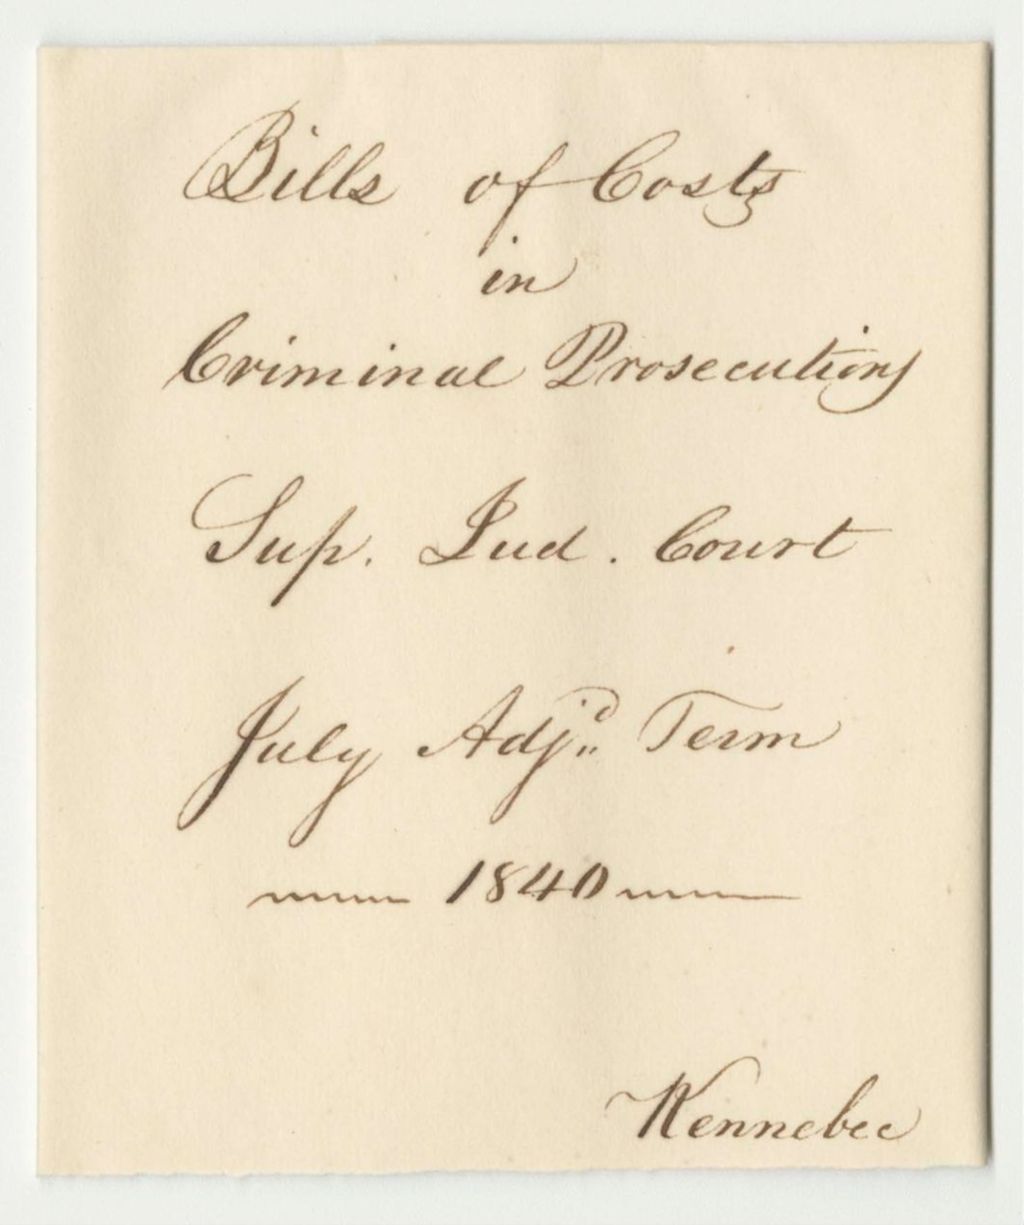 Bills of Costs
in
Criminal Prosecutions
Sup. Jud. Court
July Adjd Term
1840
Kennebec